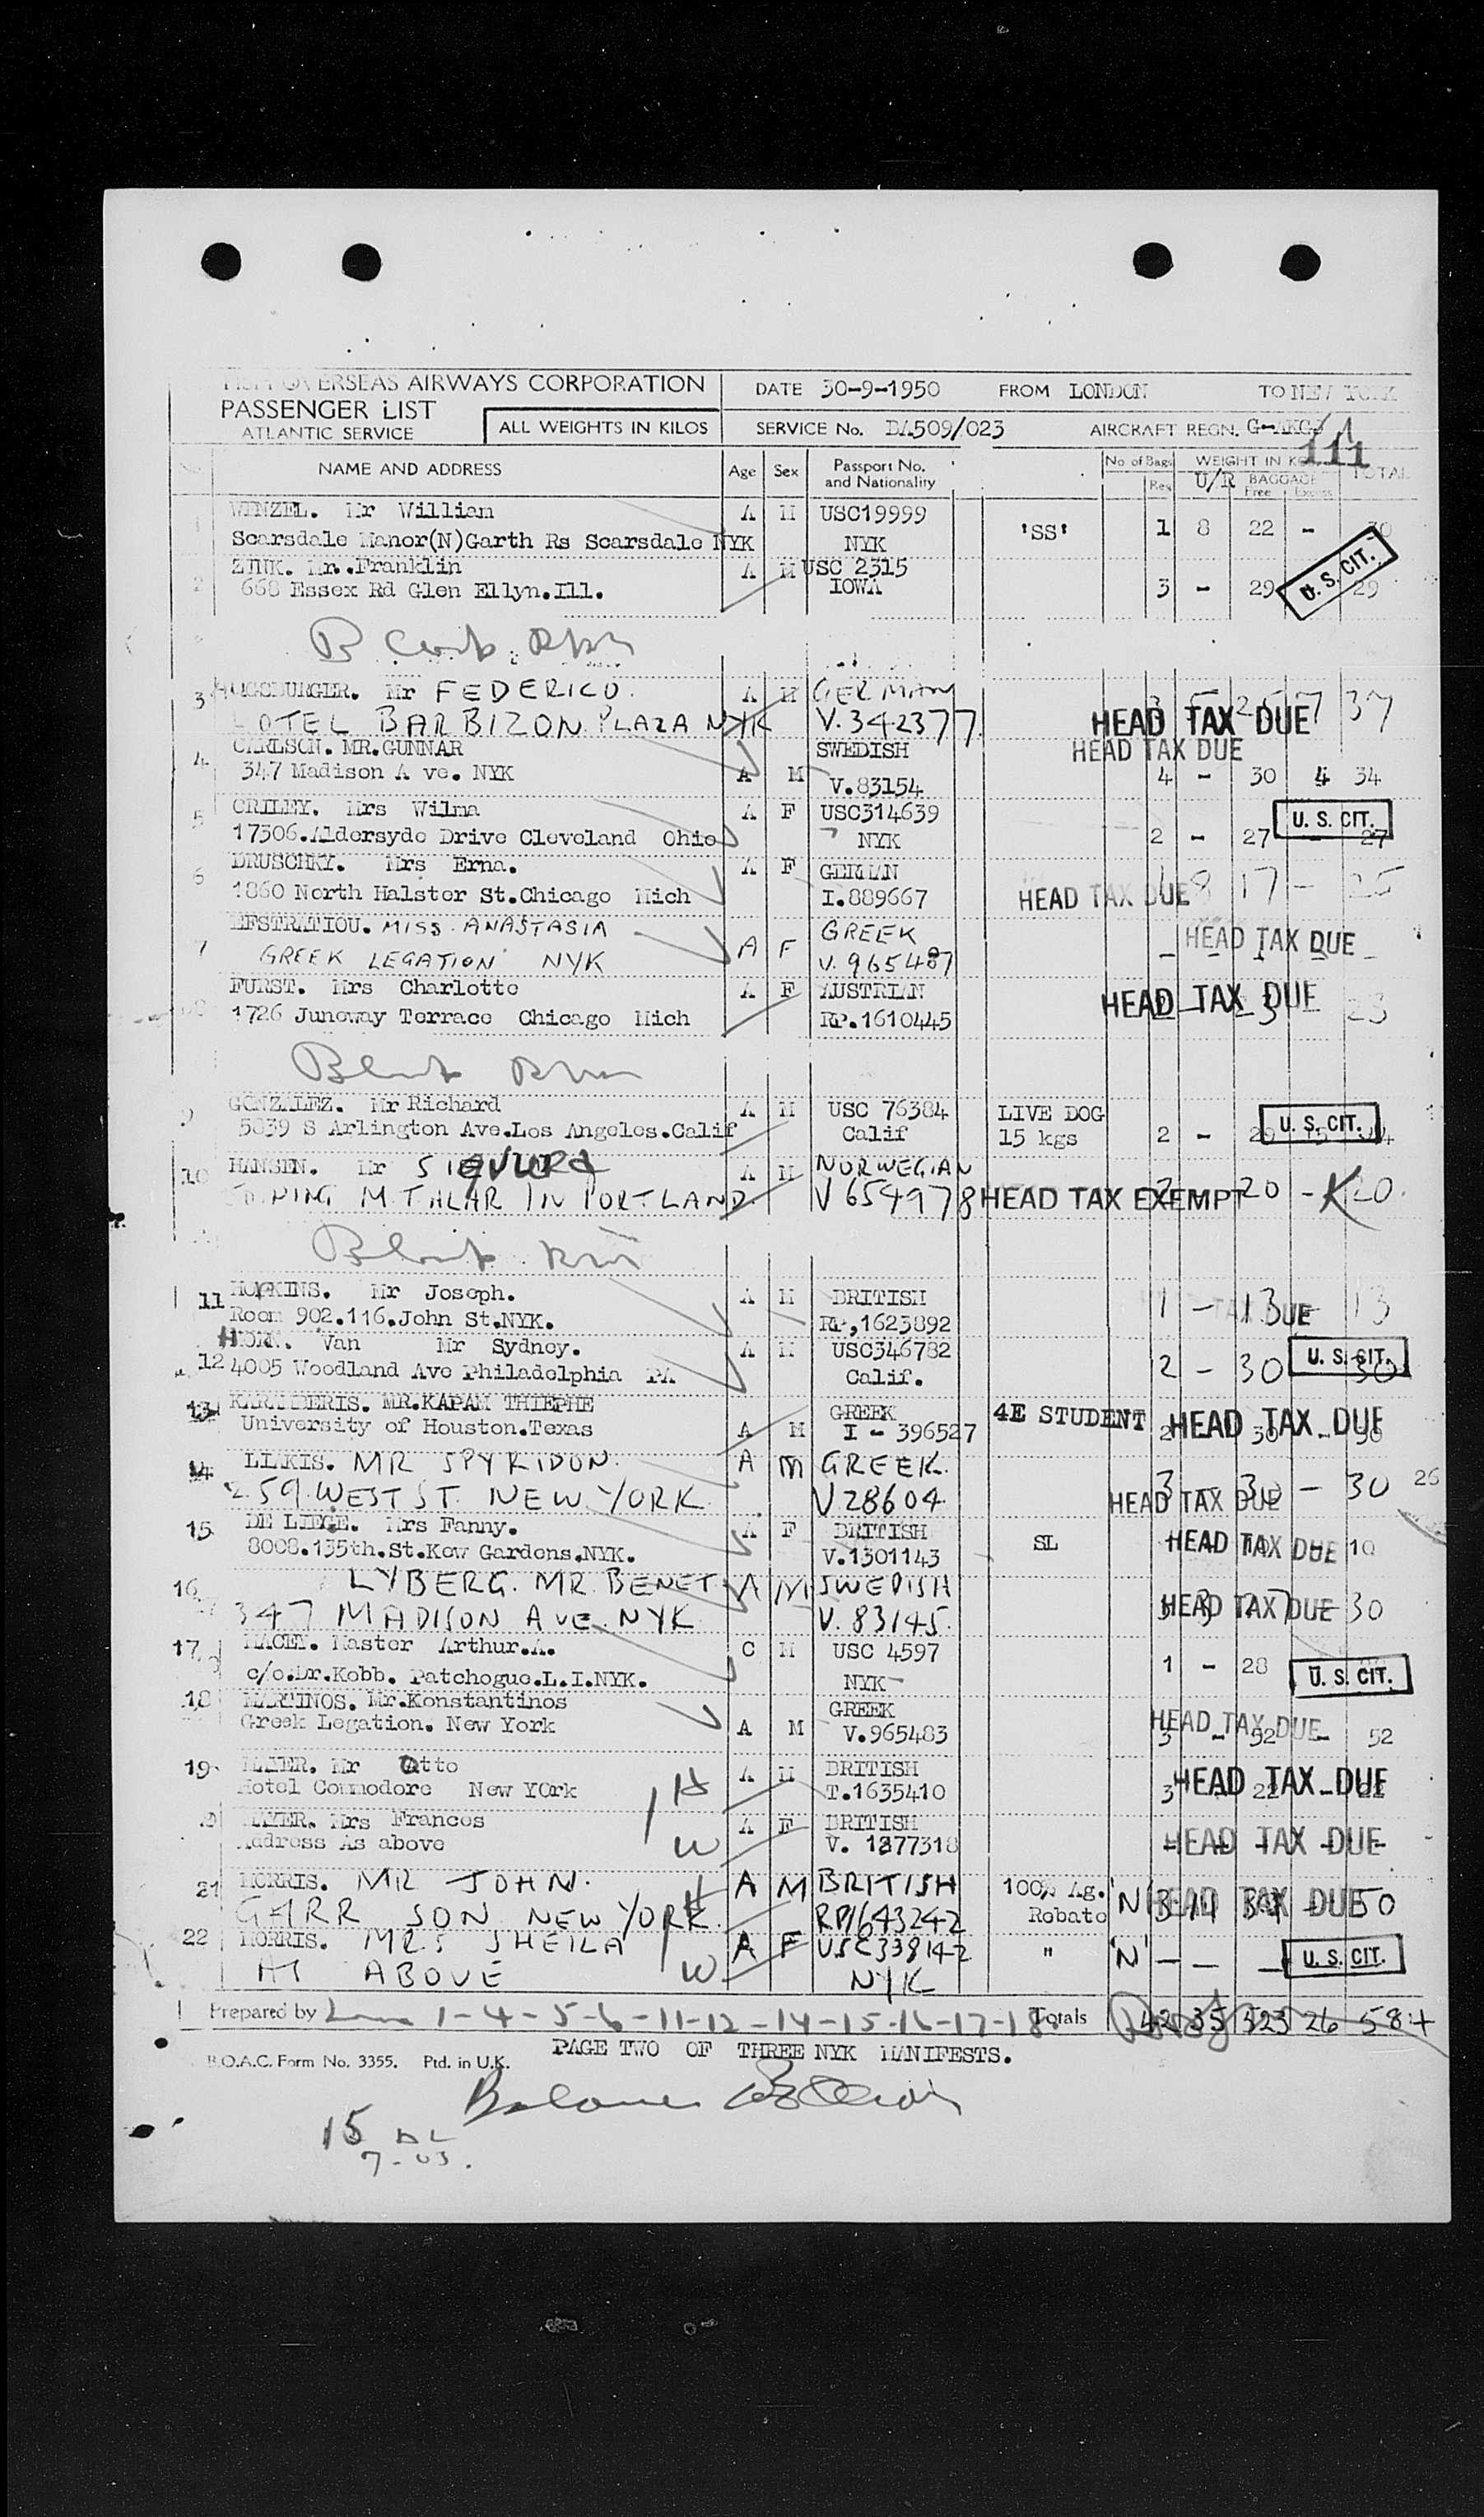 OVERSEAS AIRWAYS CORPORATION
PASSENGER LIST
ATLANTIC SERVICE
ALL WEIGHTS IN KILOS
DATE 30-9-1950 FROM LONDON TO NEW YORK
SERVICE No. BA509/023 AIRCRAFT REGN.
111
NAME AND ADDRESS Age Sex Passport No. and Nationality No of Bags Res WEIGHT IN U/R BAGGAGE Free Excess TOTAL
WENZEL. Mr William A M USC19999
Scarsdale Manor(N)Garth Rs Scarsdale NYK NYK 'SS' 1 8 22 - 30
ZINK. Mr.Franklin A M USC 2315
2 668 Essex Rd Glen Ellyn.Ill. IOWA 3 - 29 29 U. S. CIT.
3 AUGSBURGER. Mr FEDERICO. A M GERMAN
HOTEL BARBIZON PLAZA NYK V.342377 HEAD TAX DUE 7 37
4 CARLSON. MR.GUNNAR SWEDISH HEAD TAX DUE
347 Madison A ve. NYK A M V.83154 4 - 30 4 34
5 CRILEY. Mrs Wilma A F USC314639 U. S. CIT.
17306.Aldersyde Drive Cleveland Ohio NYK 2 - 27 - 27
6 DRUSCHKY. Mrs Erna. A F GERMAN
1860 North Halster St.Chicago Mich I.889667 HEAD TAX DUE 8 17 - 25
7 EFSTRATIOU. MISS. ANASTASIA A F GREEK
GREEK LEGATION NYK V.965487 HEAD TAX DUE
FURST. Mrs Charlotte A F AUSTRIAN HEAD TAX DUE
1726 Juneway Terrace Chicago Mich RP.1610445 23
9 GONZALEZ. Mr Richard A M USC 76384 LIVE DOG U. S. CIT.
5839 S Arlington Ave.Los Angeles.Calif Calif 15 kgs 2 - 29
10 HANSEN. Mr A M NORWEGIAN
IN PORTLAND V 654978 HEAD TAX EXEMPT 20 - K 20.
11 HOPKINS. Mr Joseph. A M BRITISH 1 - 13 - 13
Room 902.116.John St.NYK. RP,1623892 TAX DUE
HORN. Van Mr Sydney. A M USC346782 U. S. CIT.
12 4005 Woodland Ave Philadelphia PA Calif. 2 - 30 30
13 MR.KAPAM THIEPHE GREEK 4E STUDENT HEAD TAX DUE
University of Houston.Texas A M I - 396527 2 - 30 - 30
14 MR SPYRIDON. A M GREEK. 3 - 30 - 30 26
259.WEST ST. NEW YORK V.28604 HEAD TAX DUE
15 DE LIEGE. Mrs Fanny. A F BRITISH
8008.135th.St.Kew Gardens.NYK. V.1301143 SL HEAD TAX DUE 10
16 LYBERG. MR. BENET A M SWEDISH
347 MADISON AVE. NYK V. 83145. 3 3 27 - 30 HEAD TAX DUE
17 MACEY. Master Arthur.A. C M USC 4597
c/o.Dr.Kobb. Patchogue.L.I.NYK. NYK 1 - 28 U. S. CIT.
18 MARTINOS. Mr.Konstantinos GREEK
Greek Legation. New York A M V.965483 HEAD TAX DUE 3 - 52 - 52
19 MAYER. Mr Otto A M BRITISH
Hotel Commodore New YOrk H T.1635410 3 22 HEAD TAX DUE
MAYER. Mrs Frances A F BRITISH
Address As above W V. 1377318 HEAD TAX DUE
21 MORRIS. MR JOHN. H A M BRITISH 100% Ag.
GARR SON NEW YORK. RP1643242 Rebate 'N' HEAD TAX DUE 50
22 MORRIS. MRS SHEILA A F USC338142 " 'N' - - - U. S. CIT.
AT ABOVE W NYK
Prepared by 1-4-5-6-11-12-14-15-16-17-18. Totals 42 35 523 26 584
B.O.A.C. Form No. 3355. Ptd. in U.K. PAGE TWO OF THREE NYK MANIFESTS.
Balance
15